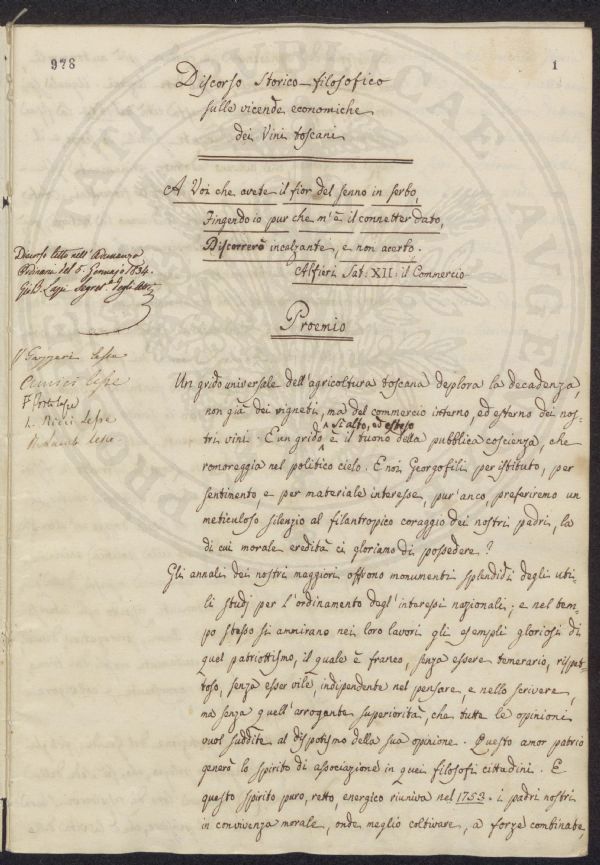 978
1
Discorso Storico-filosofico
sulle vicende economiche
dei Vini toscani
A Voi che avete il fior del senno in serbo,
Fingendo io pur che m'è il connetter dato,
Discorrerò incalzante, e non acerbo.
Alfieri Sat: XII: il Commercio
Discorso letto nell'Adunanza
Ordinaria del 5. Gennajo 1834.
Segret.º degli Atti
Proemio
lesse
lesse
F Porta lesse
L. Ricci Lesse
lesse
Un grido universale dell'agricoltura toscana deplora la decadenza,
non già dei vigneti, ma del commercio interno, ed esterno dei nos-
tri vini. E un grido sì alto, ed esteso è il tuono della pubblica coscienza, che
romoreggia nel politico cielo. E noi Georgofili per istituto, per
sentimento, e per materiale interesse, pur'anco, preferiremo un
meticuloso silenzio al filantropico coraggio dei nostri padri, la
di cui morale eredità ci gloriamo di possedere?
Gli annali dei nostri maggiori offrono monumenti splendidi degli uti-
li studj per l'ordinamento degl'interessi nazionali; e nel tem-
po stesso si ammirano nei loro lavori gli esempli gloriosi di
quel patriottismo, il quale è franco, senza essere temerario, rispet-
toso, senza esser vile, indipendente nel pensare, e nello scrivere,
ma senza quell'arrogante superiorità, che tutte le opinioni
vuol suddite al dispotismo della sua opinione. Questo amor patrio
generò lo spirito di associazione in quei filosofi cittadini. E
questo spirito puro, retto, energico riuniva nel 1753. i padri nostri
in convivenza morale, onde meglio coltivare, a forze combinate,